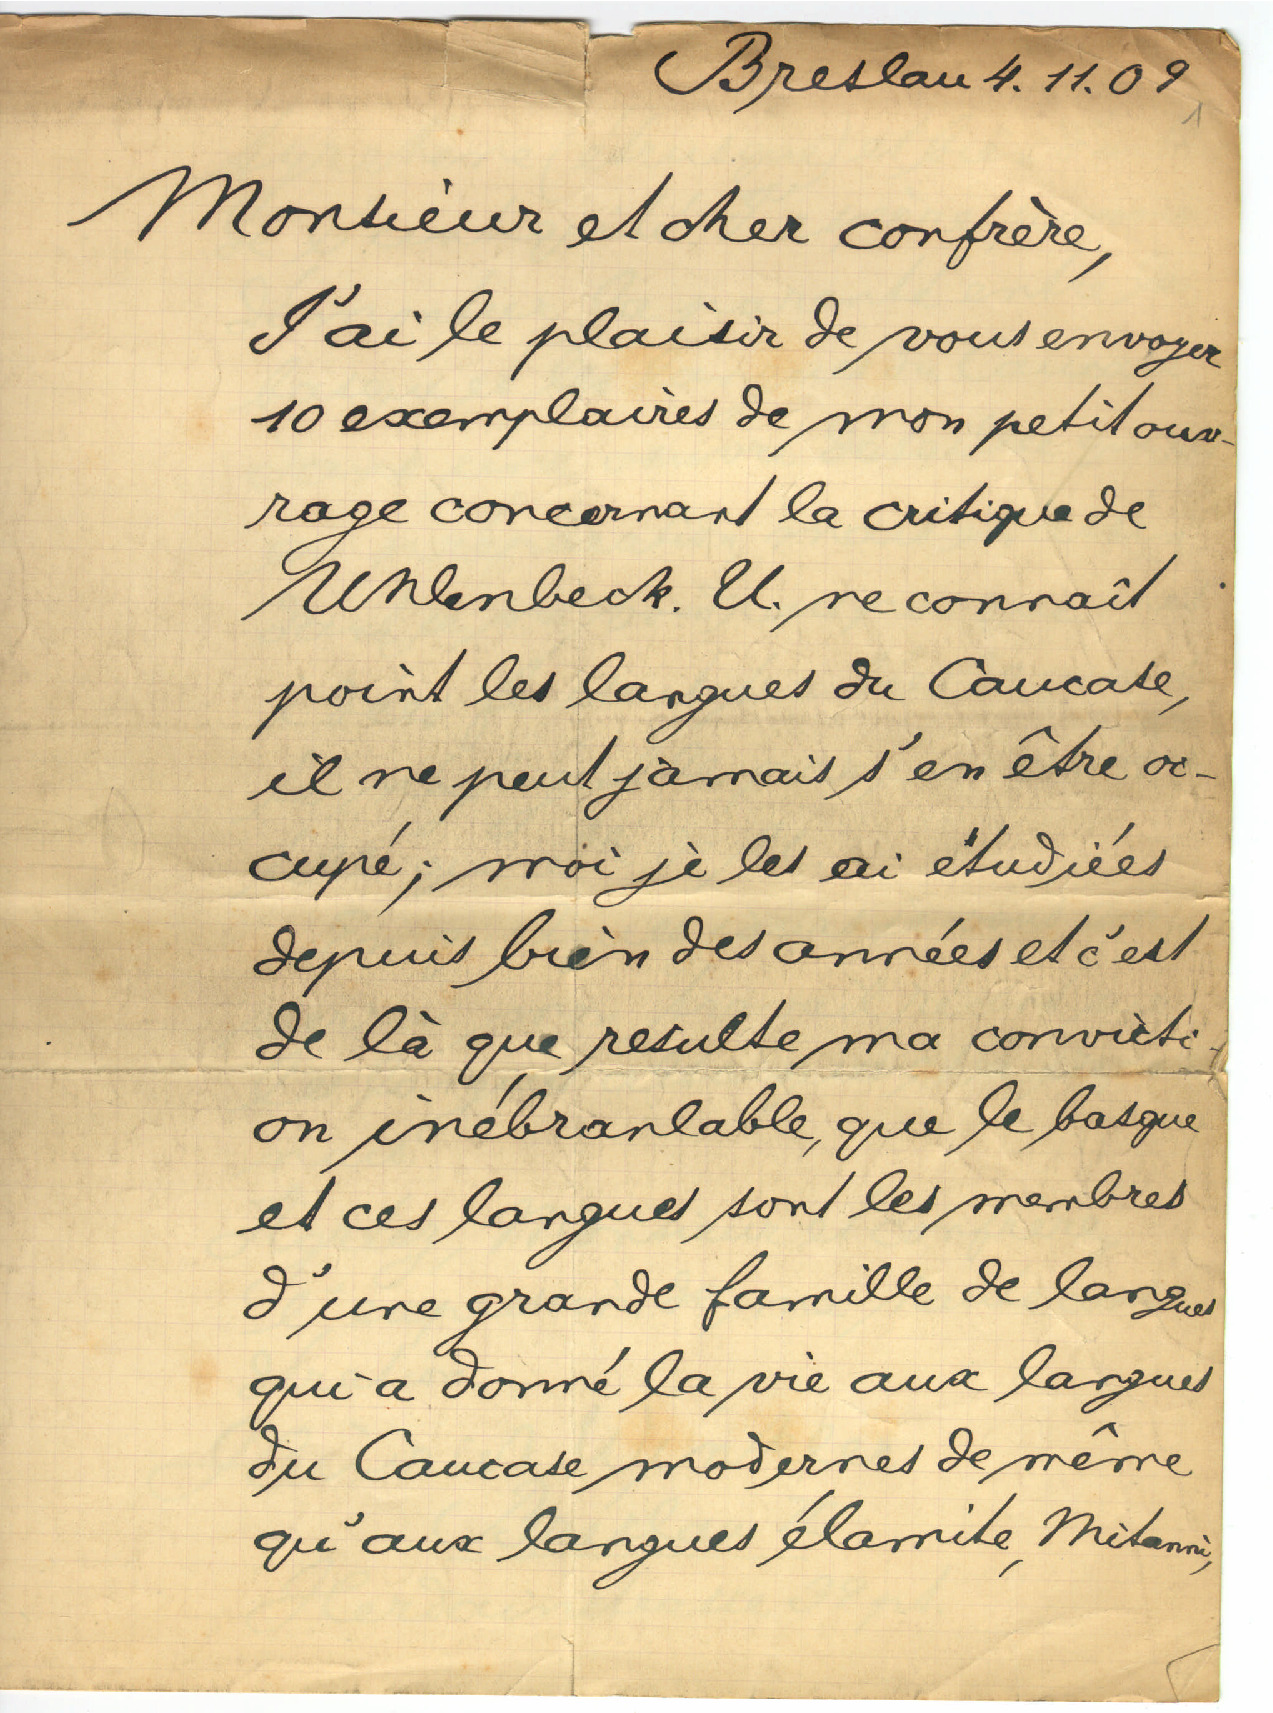 Breslau 4. 11. 09
1
Monsieur et cher confrère,
J'ai le plaisir de vous envoyer
10 exemplaires de mon petit ouv-
rage concernant la critique de
Uhlenbeck. U. ne connaît
point les langues du Caucase,
il ne peut jamais s'en être oc-
cupé; moi je les ai étudiées
depuis bien des années et c'est
de là que resulte ma convicti-
on inébranlable, que le basque
et ces langues sont les membres
d'une grande famille de langues
qui a donné la vie aux langues
du Caucase modernes de même
qu'aux langues élamite, Mitanni,